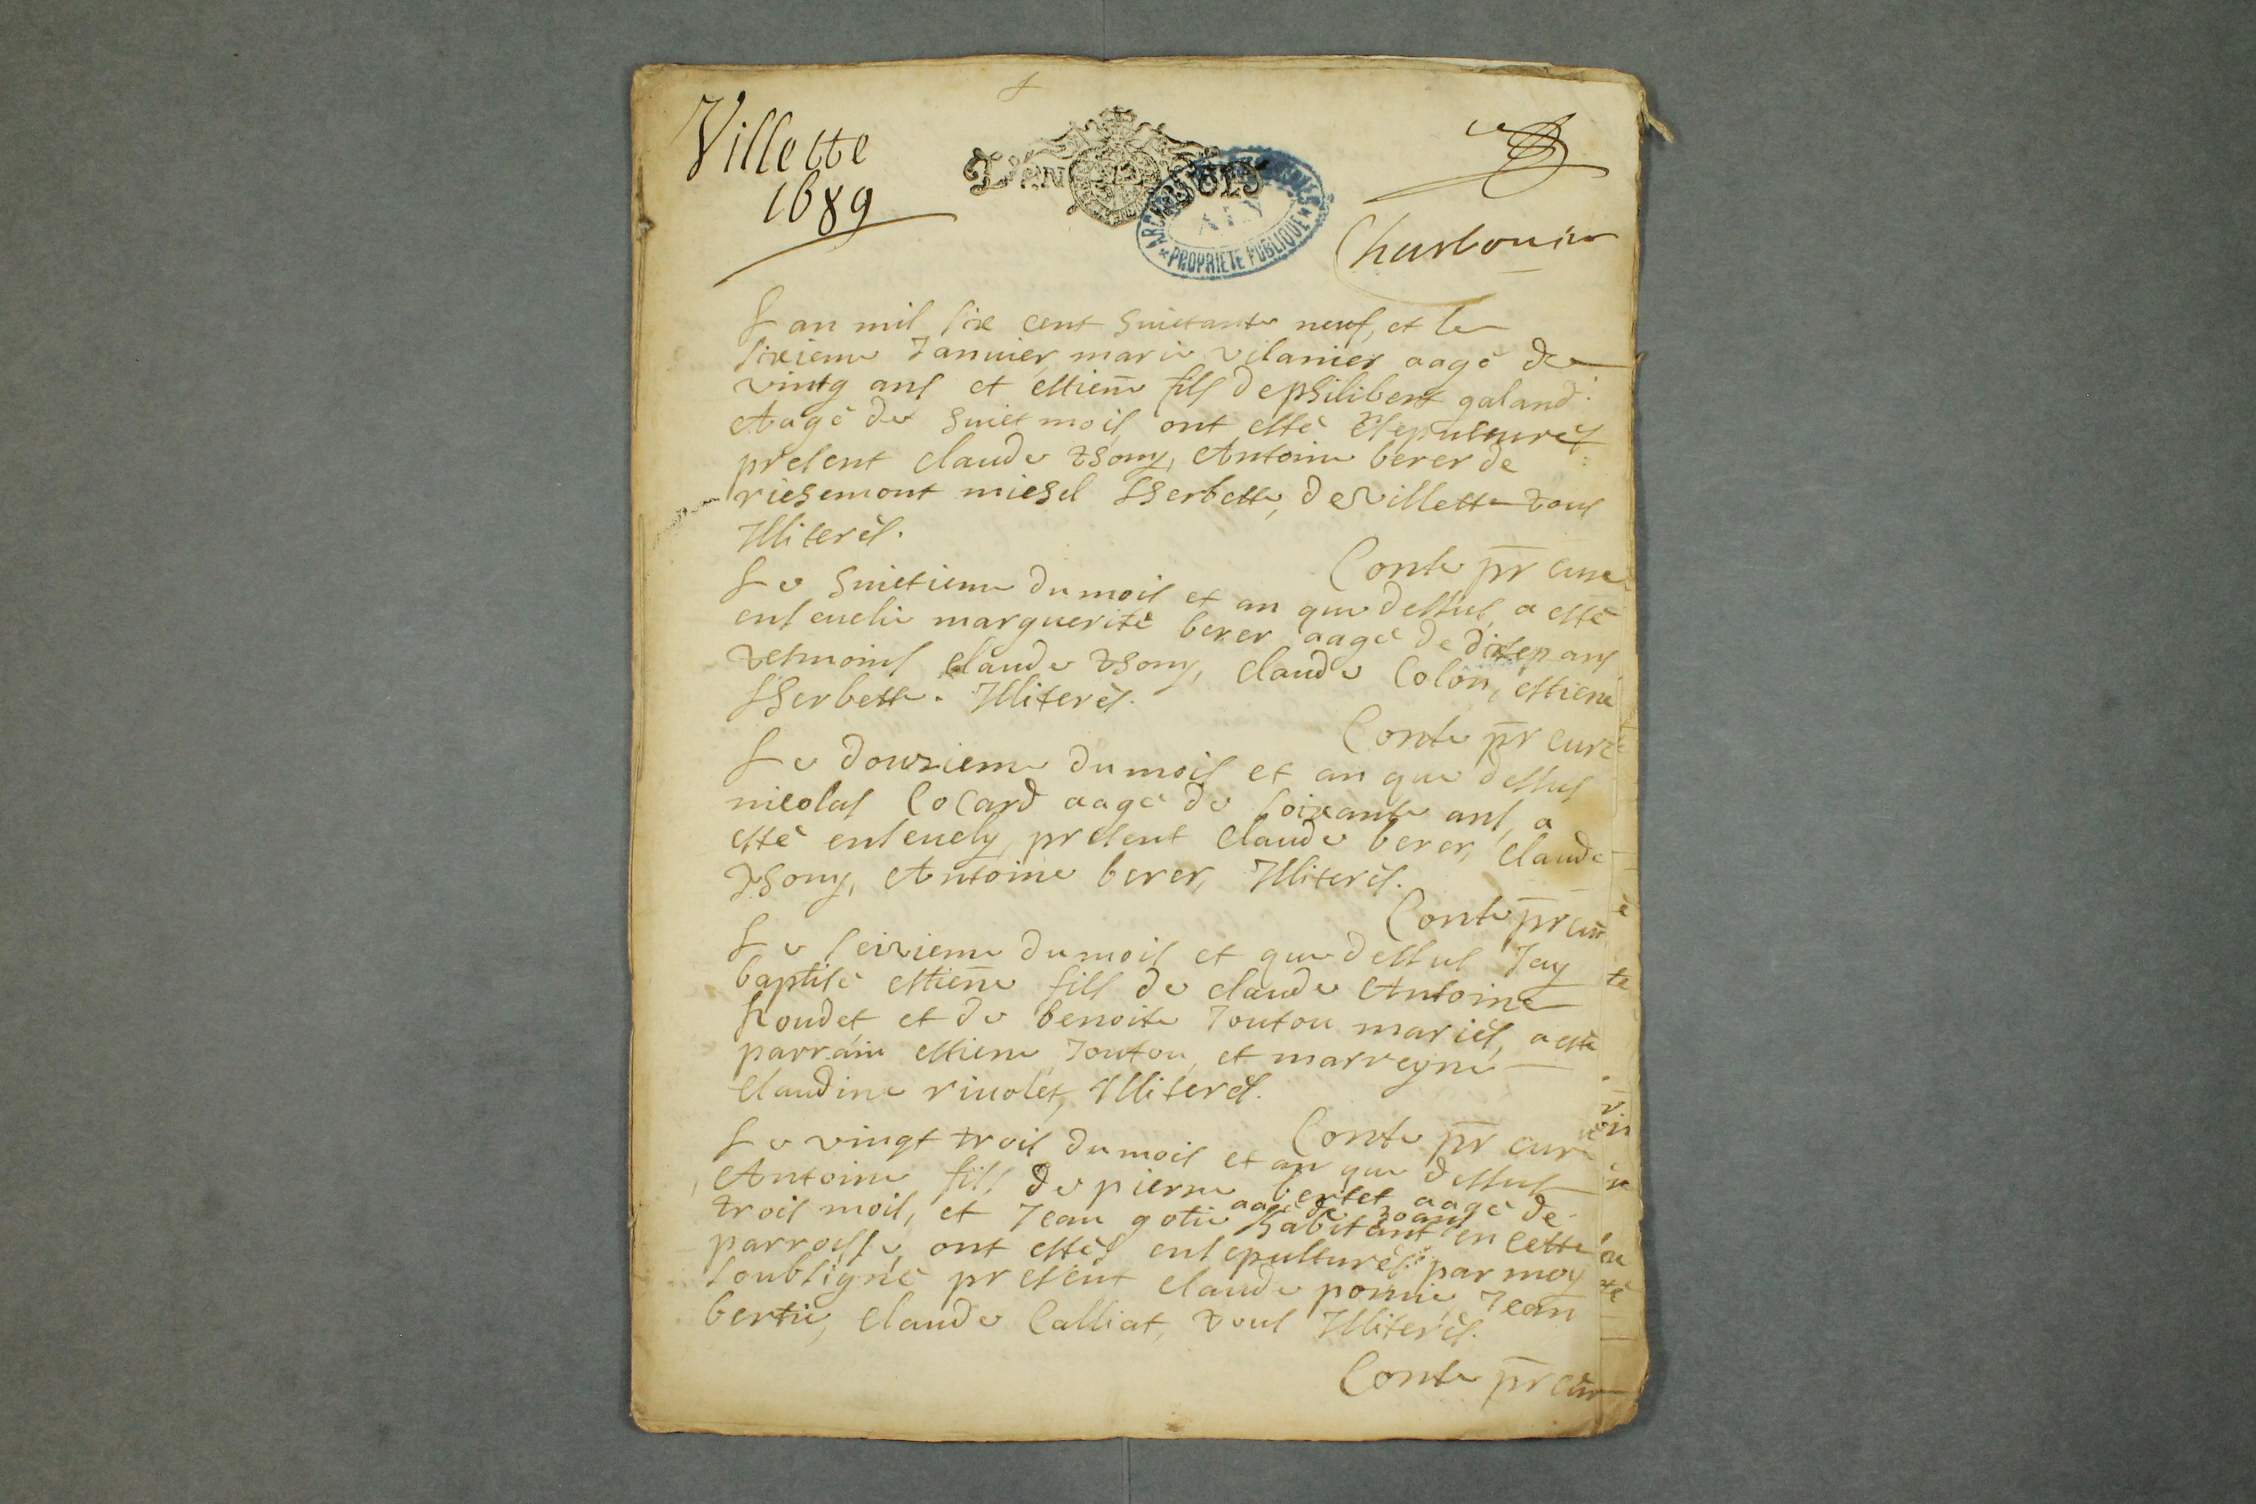 Villette
1689
L'AN
ARCHIVES
AIN
PROPRIETE PUBLIQUE
Charbonier
L an mil six cent huictante neuf, et le
sixieme Januier, marie vilanier aagé de
vintg ans et estiene fils de philibert galand
Aagé de huict mois, ont esté
present claude thony, Antoine berer de
richemont michel Iherbette, de villette tous
Illiterés.
Conte pr curé
Le huictieme du mois et an que dessus, a esté
enseuelie marguerite berer aagé de ans
tesmoins claude thony, claude Colon, estiene
Iherbette. Illiterés.
Conte pr curé
Le douzieme du mois et an que dessus
nicolas Cocard aagé de soixante ans, a
esté enseuely, present Claude berer, claude
thony, Antoine berer, Illiterés.
Conte pr cur
Le seizieme du mois et que dessus Jay
baptisé estiene fils de claude Antoine
houdet et de benoite Joutou mariés, a esté
parrain estiene Joutou, et marreyne
Claudine riuolet, Illiterés.
Conte pr curé
Le vingt trois du mois et an que dessus
Antoine fils de pierre bertet aagé de
trois mois, et Jean gotie aagé de 30 ans habitant en cette
parroisse, ont estés ensepulturés par moy
soubsigné present claude ponnie, Jean
bertie, claude Calliat, tous Illiterés.
Conte pr cur